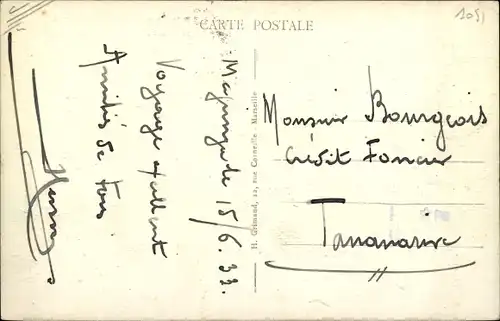 CARTE POSTALE
1051
Majunga le 15/6.33.
Voyage excellent
Amitiés de tous
H. Grimaud, 22, rue Corneille - Marseille
Monsieur Bourgeois
Crédit Foncier
Tananarive